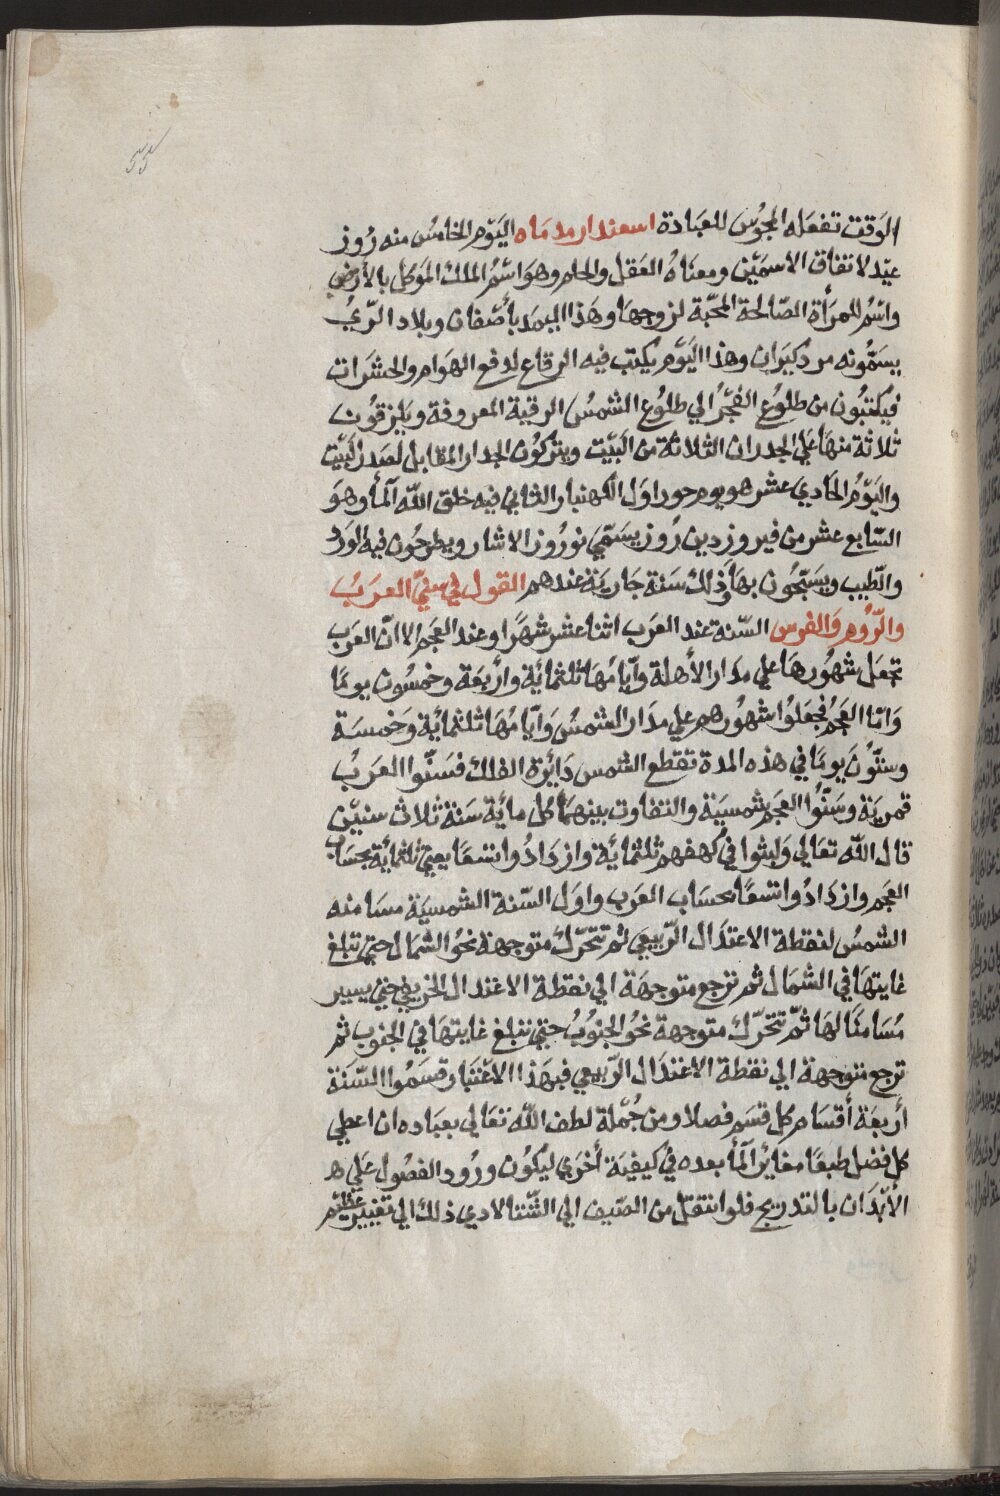 55
الوَقت تفعَله المجُوس للعبَادة اسعندارمد مَاه اليَوم الخامسُ منه رُوز
عيْد لاتفاق الاسمَيْن ومعنَاهُ العَقل والحلم وهوَ اسْمُ الملك الموَكل بالأرْض
واسْمُ للمرَأة الصّالحة المحَبّة لزوجهَا وهَذا البمَد بأصْفَان وبلاد الرّيُ
يسَمّونه مردكيرَان وهذا اليَوْم يكتب فيه الرقاع لدفع الهوَام والحشرَات
فيُكتبُون من طلوُع الفجْرُ الي طلوُع الشمسُ الرقية المعروفة ويَلزقوُن
ثلاثة منهَا علي الجدران الثلاثة من البَيْت ويتركوُن الجدار المقابل لصَدر البَيْت
واليَوْمُ الحَادي عشر هو يوم حور اوَل الكهنبار الثاني فيه خلق اللّه المأ وهوَ
السّابع عشر من فيروزدين رُوز يسَمّيَ نورُوز الاشار ويطرحُون فيه الوَرد
والطّيب ويسَبّحُون بهَا وَذلك سَنة جَاريَة عندهم القول في سنيّ العرَبُ
والرّوُم والفرس السّنة عند العرَب اثنا عشر شهرًا وعند العجَم الا انّ العرَب
تجعَل شهوُرهَا علي مدَار الأهلة وأيّامُهَا ثلثمائَة وأربَعَة وخمسُون يومًا
وَامّا العَجَمُ فجعَلوُا شهوُرهم علي مدَار الشمسُ وَايّامُهَا ثلثمائَة وَخمسَة
وستّوُنَ يومًا في هذه المدة تقطع الشمس دَائرة الفلك فسَنّوا العرَبُ
قمريَة وسَنّوُا العجَم شمسيَة والتفاوت بينهمَا كل مائة سَنة ثلاث سنيْن
قال اللّه تعَالي وَلبثوا في كهفهم ثلثمائَة وازدَادُوا تسعًا يعني ثلثمائَة بحسَاب
العجَم وازدَادُوا تسعًا بحسَاب العرَب واوَل السّنة الشمسيَة مسَامنه
الشمسُ لنقطة الاعتدَال الرّبيعي ثم تتحَرّك متوجهة نحوُ الشمَال حتي تبلغ
غايتهَا في الشمَال ثم ترجع متوجهَة الي نقطة الاعتدال الخريفي حتي يسير
مُسَامتًا لهَا ثمّ تتحَرّك متوجهة نحوُ الجنوُبُ حتي تبلغ غايتهَا في الجنوب ثم
ترجع متوجهة الي نقطة الاعتدَال الرّبيعي فبهَذا الاعْتبَار قسَموُا السّنَة
أربعَة أقسَام كل قسَم فصلا ومن جُمْلة لطف اللّه تعَالي بعبَاده ان اعطي
كل فصْل طبعًا مغايْر المأ بعده في كيفيَة أخرَي ليكوُن ورُود الفصُول علي هـ
الأبْدَان بالتدريج فلو انتقل من الصّيف الي الشّتا لادي ذلك الي تغيير عظيم